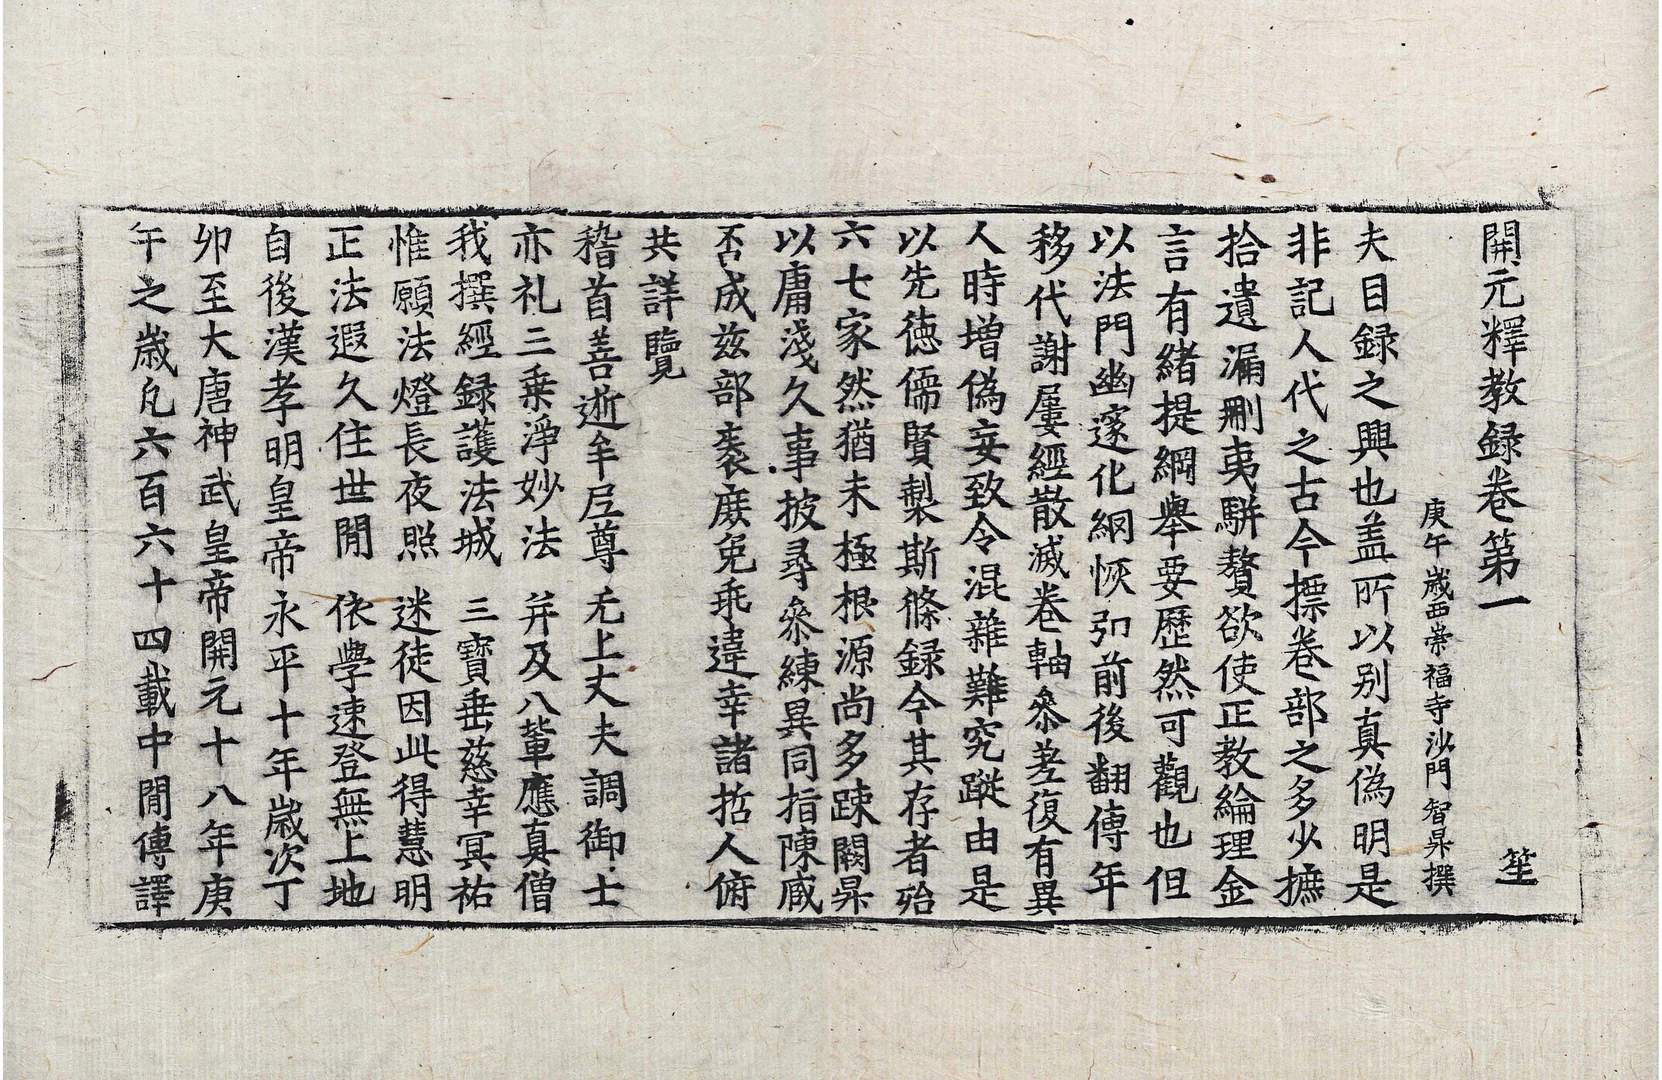 開元釋教録卷第一 笙
庚午歲西崇福寺沙門智昇撰
夫目録之興也盖所以别真偽明是
非記人代之古今摽卷部之多少摭
拾遺漏刪夷駢贅欲使正教綸理金
言有緒提綱舉要歷然可觀也但
以法門幽邃化網恢弘前後翻傳年
移代謝屢經散滅卷軸叅差復有異
人時增偽妄致令混雜難究蹤由是
以先德儒賢製斯條録今其存者殆
六七家然猶未極根源尚多踈闕昇
以庸淺久事披尋叅練異同指陳臧
否成兹部袠庻免乖違幸諸哲人俯
共詳覽
稽首善逝牟尼尊 无上丈夫調御士
亦礼三乗淨妙法 并及八輩應真僧
我撰經録護法城 三寶垂慈幸冥祐
惟願法燈長夜照 迷徒因此得慧明
正法遐久住世閒 依學速登無上地
自後漢孝明皇帝永平十年歲次丁
夘至大唐神武皇帝開元十八年庚
午之歲凡六百六十四載中閒傳譯